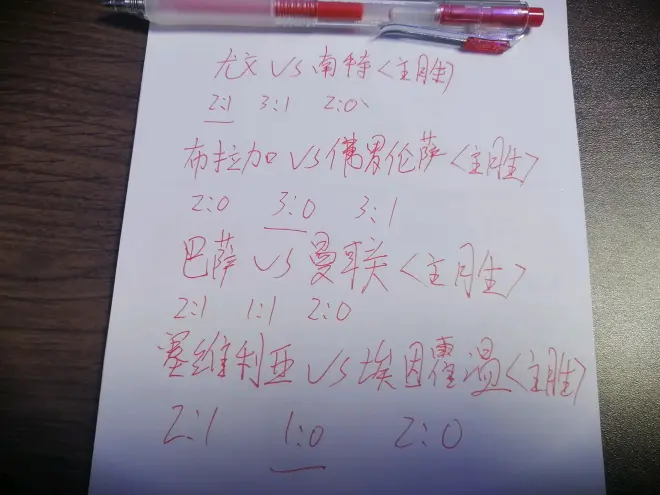 尤文VS南特<主胜)
2:1 3:1 2:0、
布拉加VS佛罗伦萨<主胜>
2:0 3:0 3:1
巴萨VS曼联<主胜>
2:1 1:1 2:0
塞维利亚VS埃因霍温<主胜>
2:1 1:0 2:0